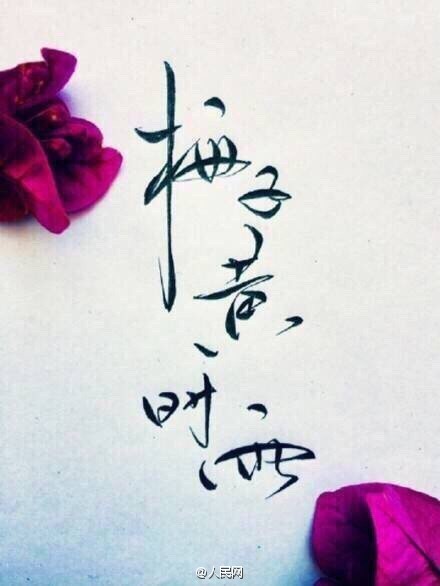 梅子黄时雨
@人民网